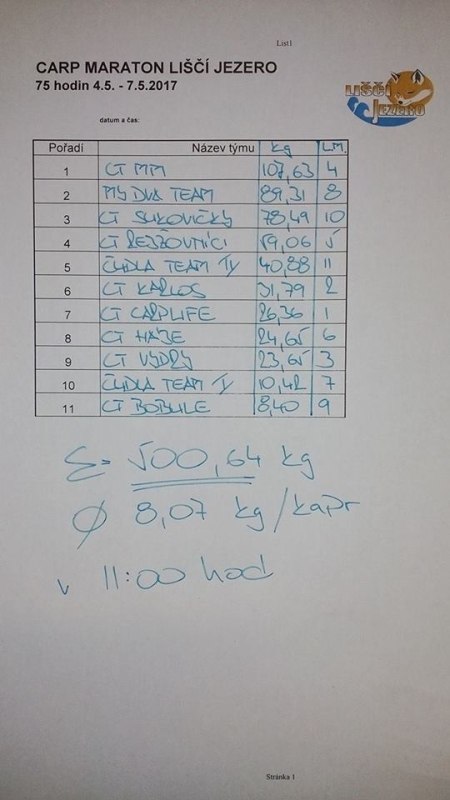 List1
CARP MARATON LIŠČÍ JEZERO
75 hodin 4.5. - 7.5.2017
LIŠČÍ
JEZERO
datum a čas:
Pořadí Název týmu kg L.M.
1 CT MM 107,63 4
2 MY DVA TEAM 89,31 8
3 CT SUKOVIČKY 78,49 10
4 CT 59,06 5
5 ČUDLA TEAM 40,88 11
6 CT KARLOS 31,79 2
7 CT CARPLIFE 26,36 1
8 CT HÁJE 24,65 6
9 CT VYDRY 23,65 3
10 ČUDLA TEAM 10,42 7
11 CT BOBULE 8,40 9
Σ = 500,64 kg
Ø 8,07 kg / kapr
v 11:00 hod
Stránka 1